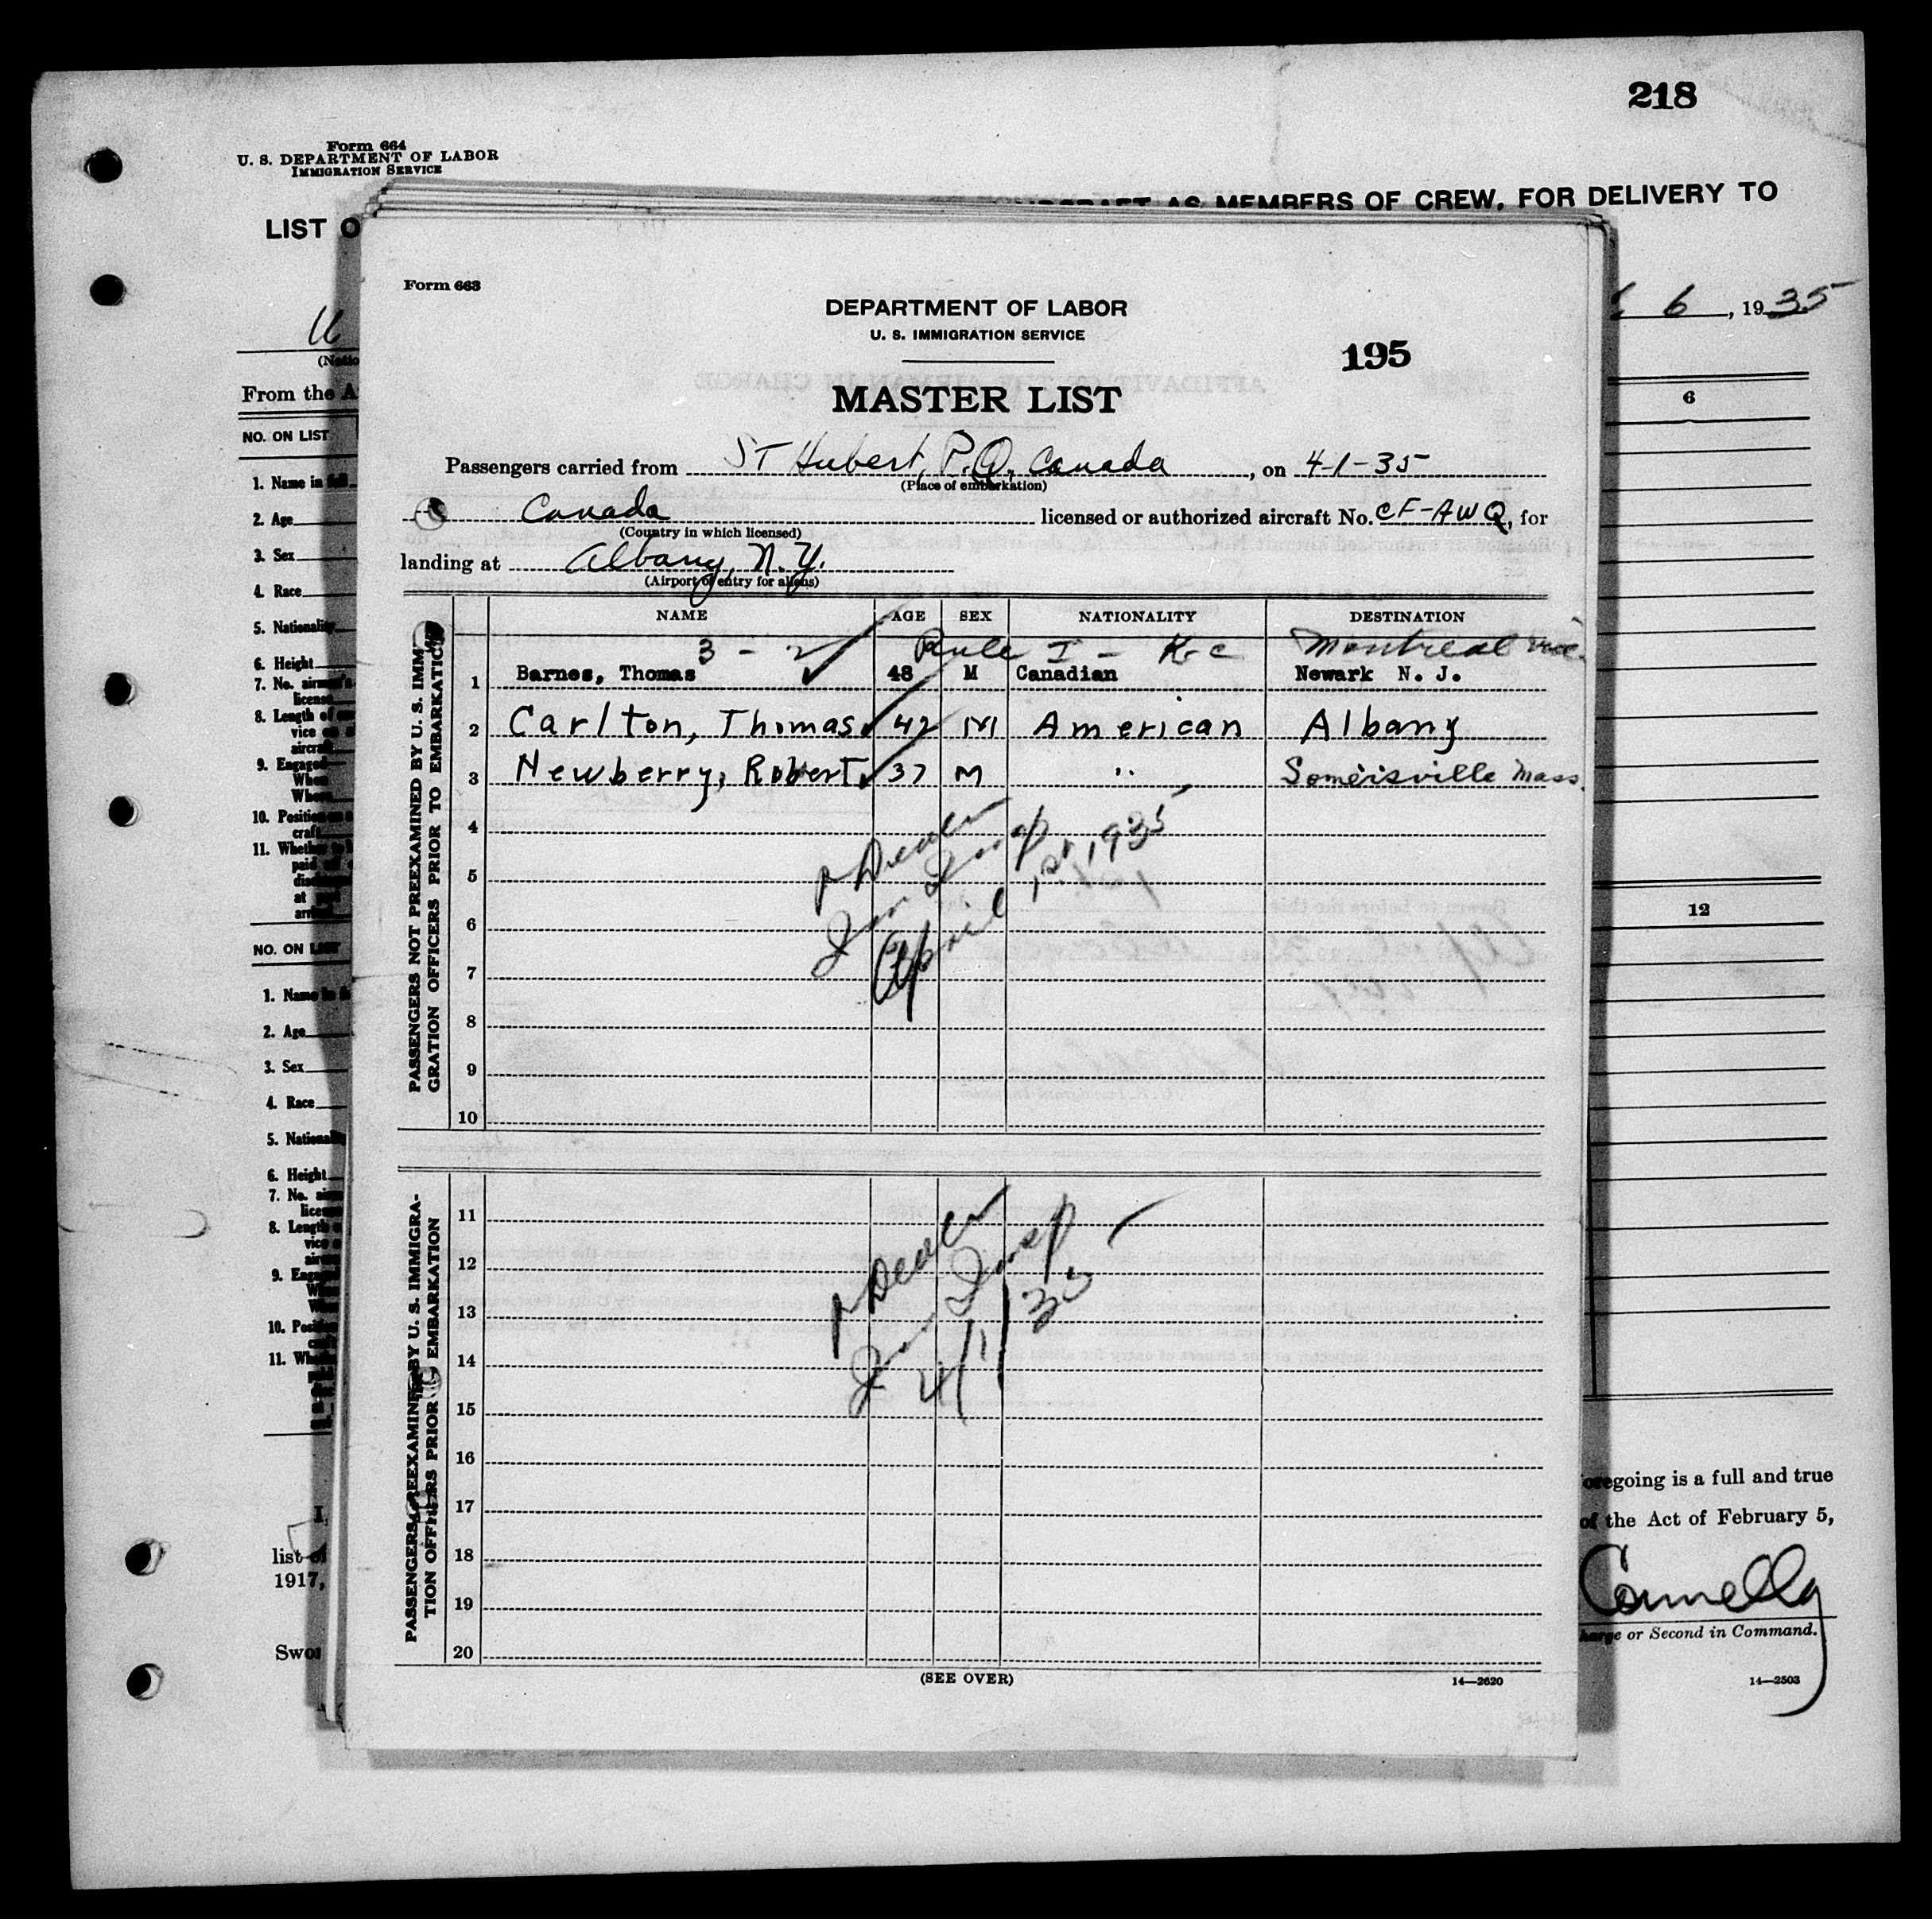 218
Form 664
U. S. DEPARTMENT OF LABOR
IMMIGRATION SERVICE
AS MEMBERS OF CREW, FOR DELIVERY TO
LIST O
6, 1935
From the A
NO. ON LIST
1. Name in
2. Age
3. Sex
4. Race
5. Nationality
6. Height
7. No.
license
8. Length of
vice
aircraft
9. Engaged
When
Where
10. Position
craft
11. Whether
paid
at
6
12
NO. ON LIST
1. Name
2. Age
3. Sex
4. Race
5. National
6. Height
7. No.
8. Length
vice
9.
10.
11.
I,
list
1917,
Swor
oregoing is a full and true
of the Act of February 5,
Connelly
harge or Second in Command.
14—2503
Form 663
DEPARTMENT OF LABOR
U. S. IMMIGRATION SERVICE
195
MASTER LIST
Passengers carried from ST Hubert, P.Q. Canada, on 4-1-35
(Place of embarkation)
Canada licensed or authorized aircraft No. CF-AWQ, for
(Country in which licensed)
landing at Albany, N.Y.
(Airport of entry for aliens)
PASSENGERS NOT PREEXAMINED BY U. S. IMMIGRATION OFFICERS PRIOR TO EMBARKATION
NAME AGE SEX NATIONALITY DESTINATION
3 - 2 Rule I - Montreal
1 Barnes, Thomas 48 M Canadian Newark N. J.
2 Carlton, Thomas 42 M American Albany
3 Newberry, Robert 37 M " Somerisville Mass.
4
5
6
7
8
9
10
Imm Insp
April 1st, 1935
PASSENGERS PREEXAMINED BY U. S. IMMIGRATION OFFICERS PRIOR TO EMBARKATION
11
12
13
14
15
16
17
18
19
20
Imm Insp
4/1/35
(SEE OVER)
14—2620